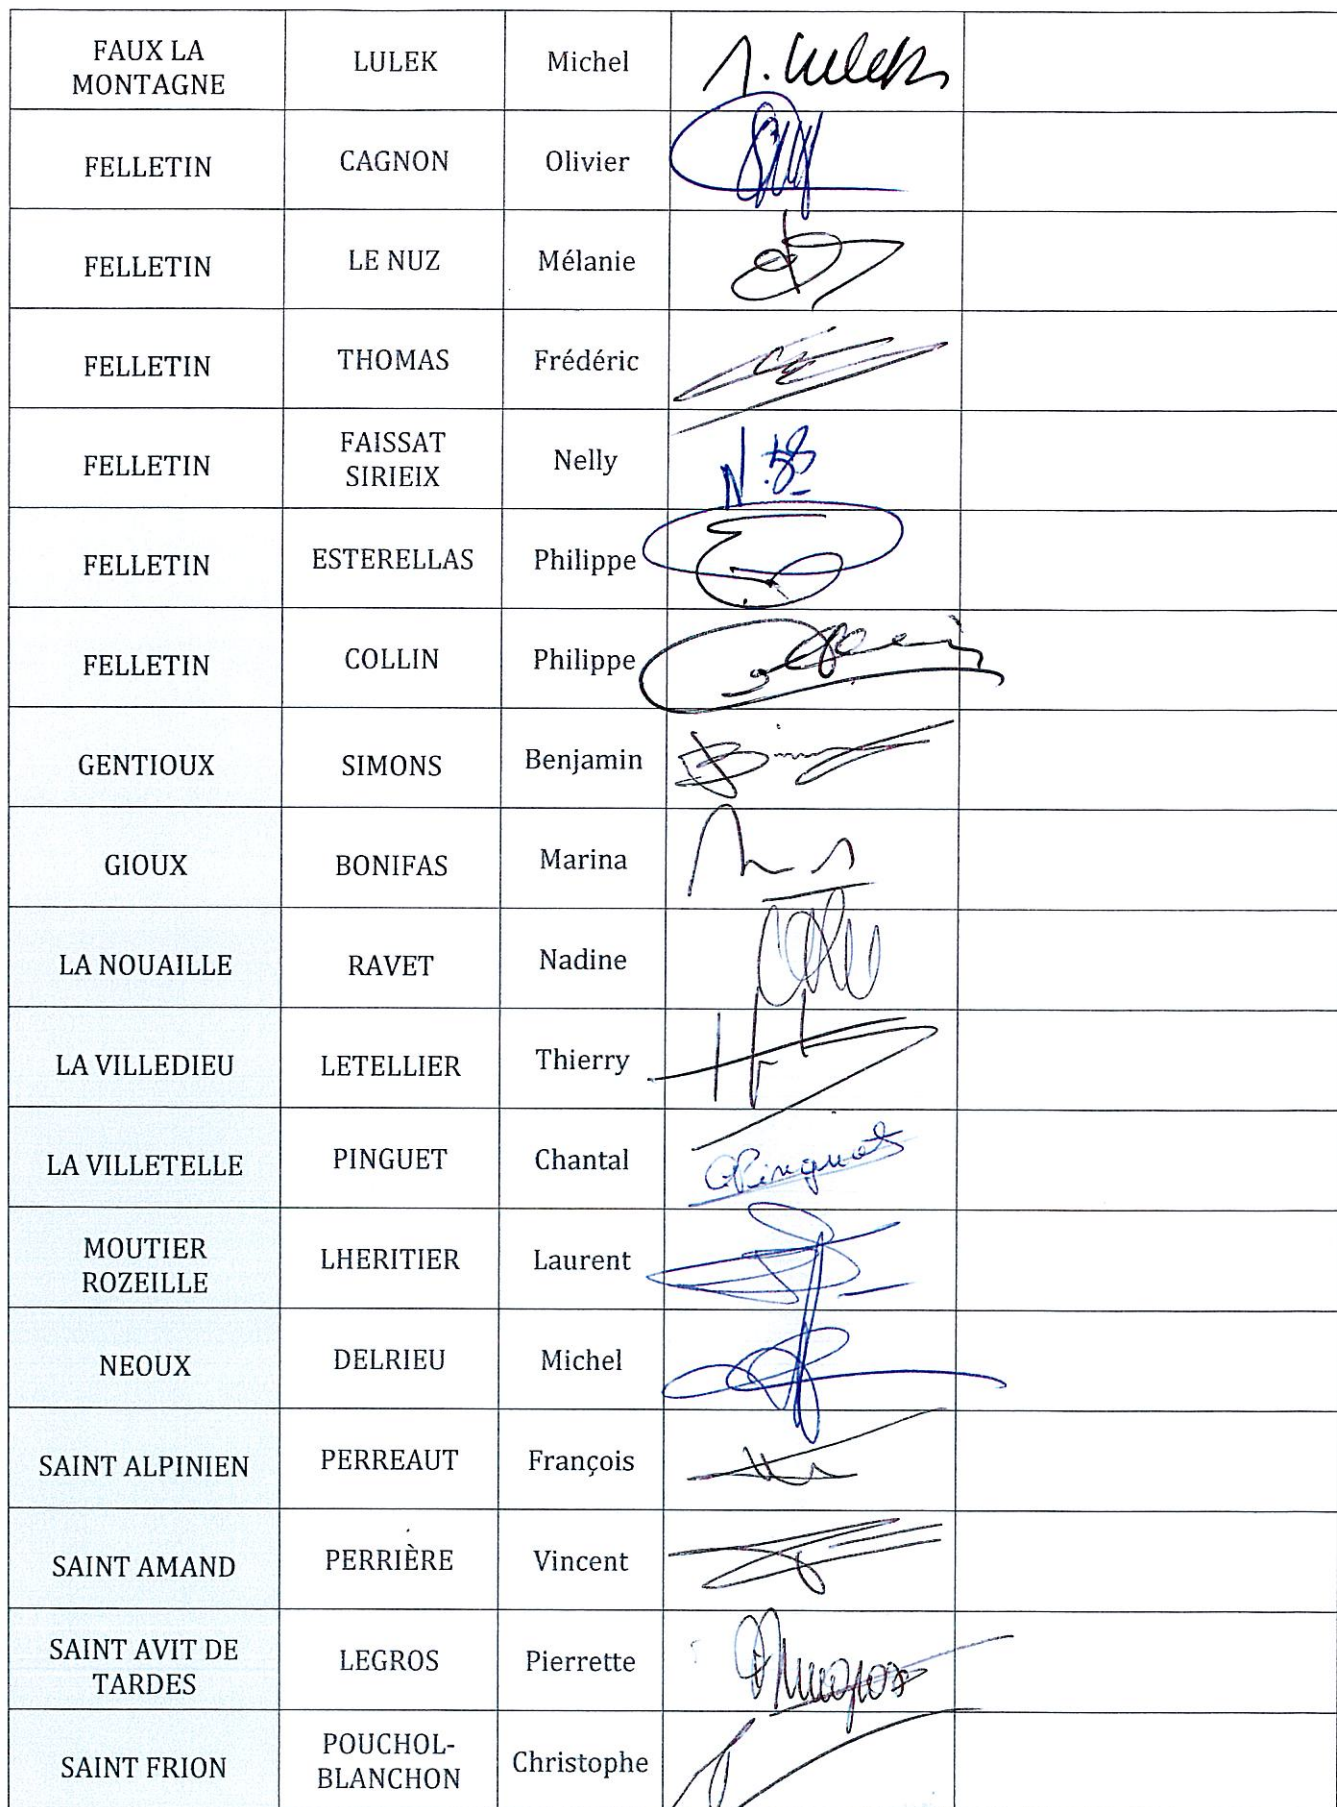 FAUX LA
MONTAGNE
LULEK
Michel
FELLETIN
CAGNON
Olivier
FELLETIN
LE NUZ
Mélanie
FELLETIN
THOMAS
Frédéric
FELLETIN
FAISSAT
SIRIEIX
Nelly
FELLETIN
ESTERELLAS
Philippe
FELLETIN
COLLIN
Philippe
GENTIOUX
SIMONS
Benjamin
GIOUX
BONIFAS
Marina
LA NOUAILLE
RAVET
Nadine
LA VILLEDIEU
LETELLIER
Thierry
LA VILLETELLE
PINGUET
Chantal
MOUTIER
ROZEILLE
LHERITIER
Laurent
NEOUX
DELRIEU
Michel
SAINT ALPINIEN
PERREAUT
François
SAINT AMAND
PERRIÈRE
Vincent
SAINT AVIT DE
TARDES
LEGROS
Pierrette
SAINT FRION
POUCHOL-
BLANCHON
Christophe